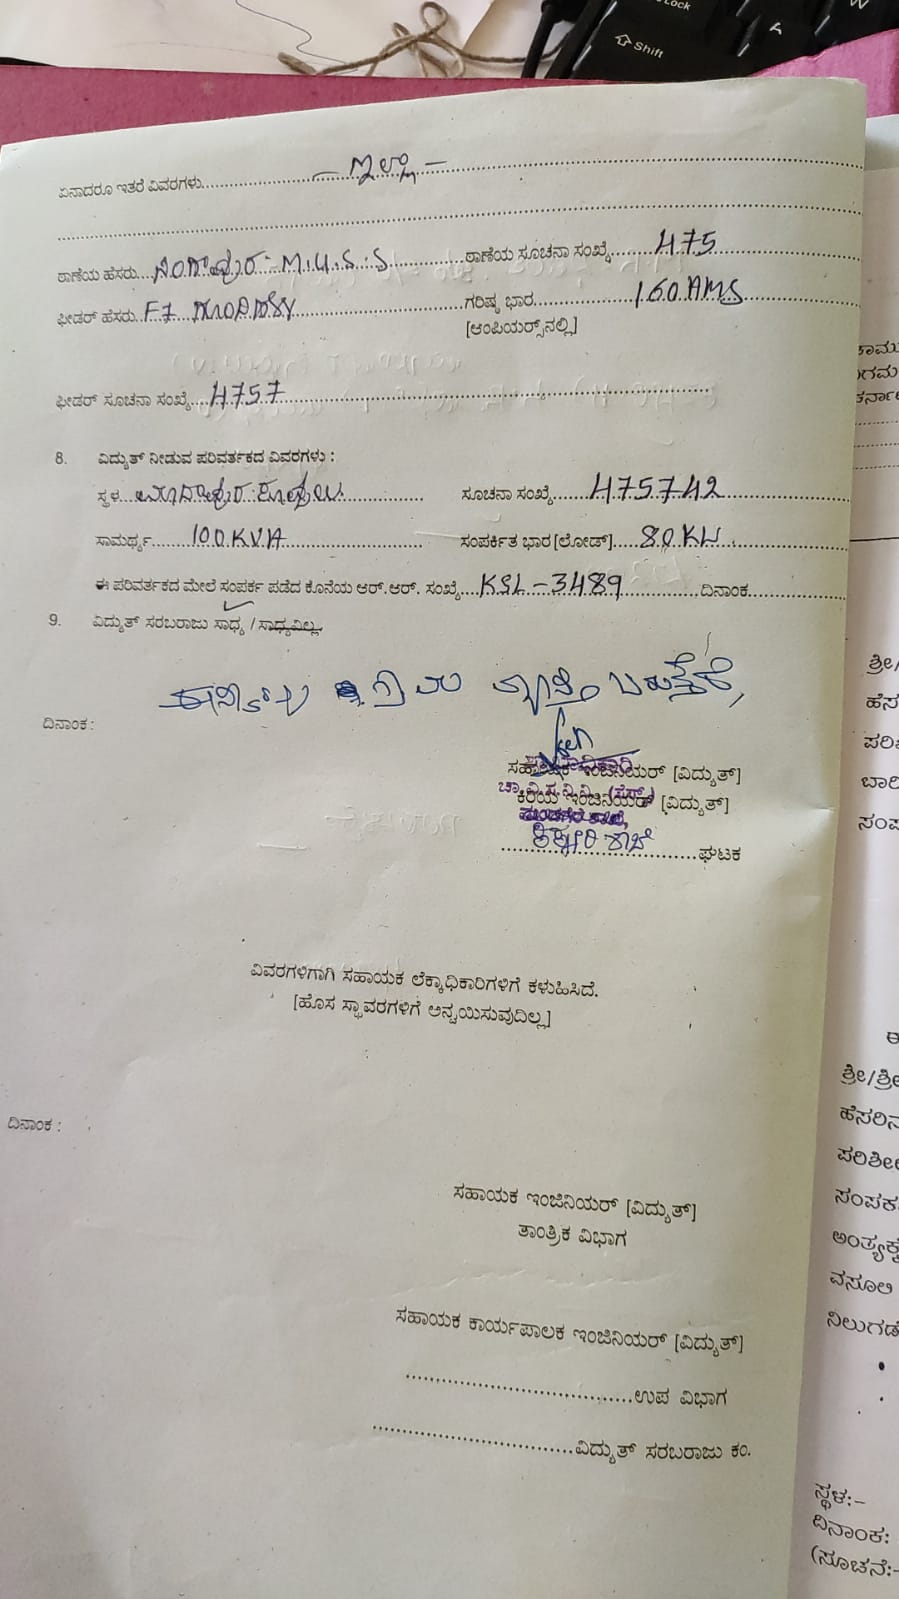 Lock
Shift
ಏನಾದರೂ ಇತರೆ ವಿವರಗಳು.......... — ಇಲ್ಲ —
ಠಾಣೆಯ ಹೆಸರು... M.U.S.S ಠಾಣೆಯ ಸೂಚನಾ ಸಂಖ್ಯೆ...... 475
ಫೀಡರ್ ಹೆಸರು. F7 ಗರಿಷ್ಠ ಭಾರ.......... 160 AMS
[ಆಂಪಿಯರ್ಸ್‌ನಲ್ಲಿ]
ಫೀಡರ್ ಸೂಚನಾ ಸಂಖ್ಯೆ.... 4757
8. ವಿದ್ಯುತ್ ನೀಡುವ ಪರಿವರ್ತಕದ ವಿವರಗಳು :
ಸ್ಥಳ... ಸೂಚನಾ ಸಂಖ್ಯೆ...... 475742
ಸಾಮರ್ಥ್ಯ...... 100 KVA ಸಂಪರ್ಕಿತ ಭಾರ [ಲೋಡ್].... 80 KW
ಈ ಪರಿವರ್ತಕದ ಮೇಲೆ ಸಂಪರ್ಕ ಪಡೆದ ಕೊನೆಯ ಆರ್.ಆರ್. ಸಂಖ್ಯೆ.... KSL-3489 ........ದಿನಾಂಕ..........
9. ವಿದ್ಯುತ್ ಸರಬರಾಜು ಸಾಧ್ಯ / ಸಾಧ್ಯವಿಲ್ಲ.
ಬರುತ್ತದೆ,
ದಿನಾಂಕ :
ಸಹಾಯಕ ಇಂಜಿನಿಯರ್ [ವಿದ್ಯುತ್]
ಕಿರಿಯ ಇಂಜಿನಿಯರ್ [ವಿದ್ಯುತ್]
..............ಘಟಕ
ವಿವರಗಳಿಗಾಗಿ ಸಹಾಯಕ ಲೆಕ್ಕಾಧಿಕಾರಿಗಳಿಗೆ ಕಳುಹಿಸಿದೆ.
[ಹೊಸ ಸ್ಥಾವರಗಳಿಗೆ ಅನ್ವಯಿಸುವುದಿಲ್ಲ]
ದಿನಾಂಕ :
ಸಹಾಯಕ ಇಂಜಿನಿಯರ್ [ವಿದ್ಯುತ್]
ತಾಂತ್ರಿಕ ವಿಭಾಗ
ಸಹಾಯಕ ಕಾರ್ಯಪಾಲಕ ಇಂಜಿನಿಯರ್ [ವಿದ್ಯುತ್]
..................ಉಪ ವಿಭಾಗ
..................ವಿದ್ಯುತ್ ಸರಬರಾಜು ಕಂ.
ಶ್ರೀ/
ಶ್ರೀ/ಶ್ರೀ
ಸ್ಥಳ:-
ದಿನಾಂಕ:
(ಸೂಚನೆ:-